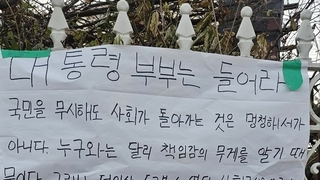 대통령 부부는 들어라
국민을 무시해도 사회가 돌아가는 것은 멍청해서가
아니다. 누구와는 달리 책임감의 무게를 알기 때
문이다.